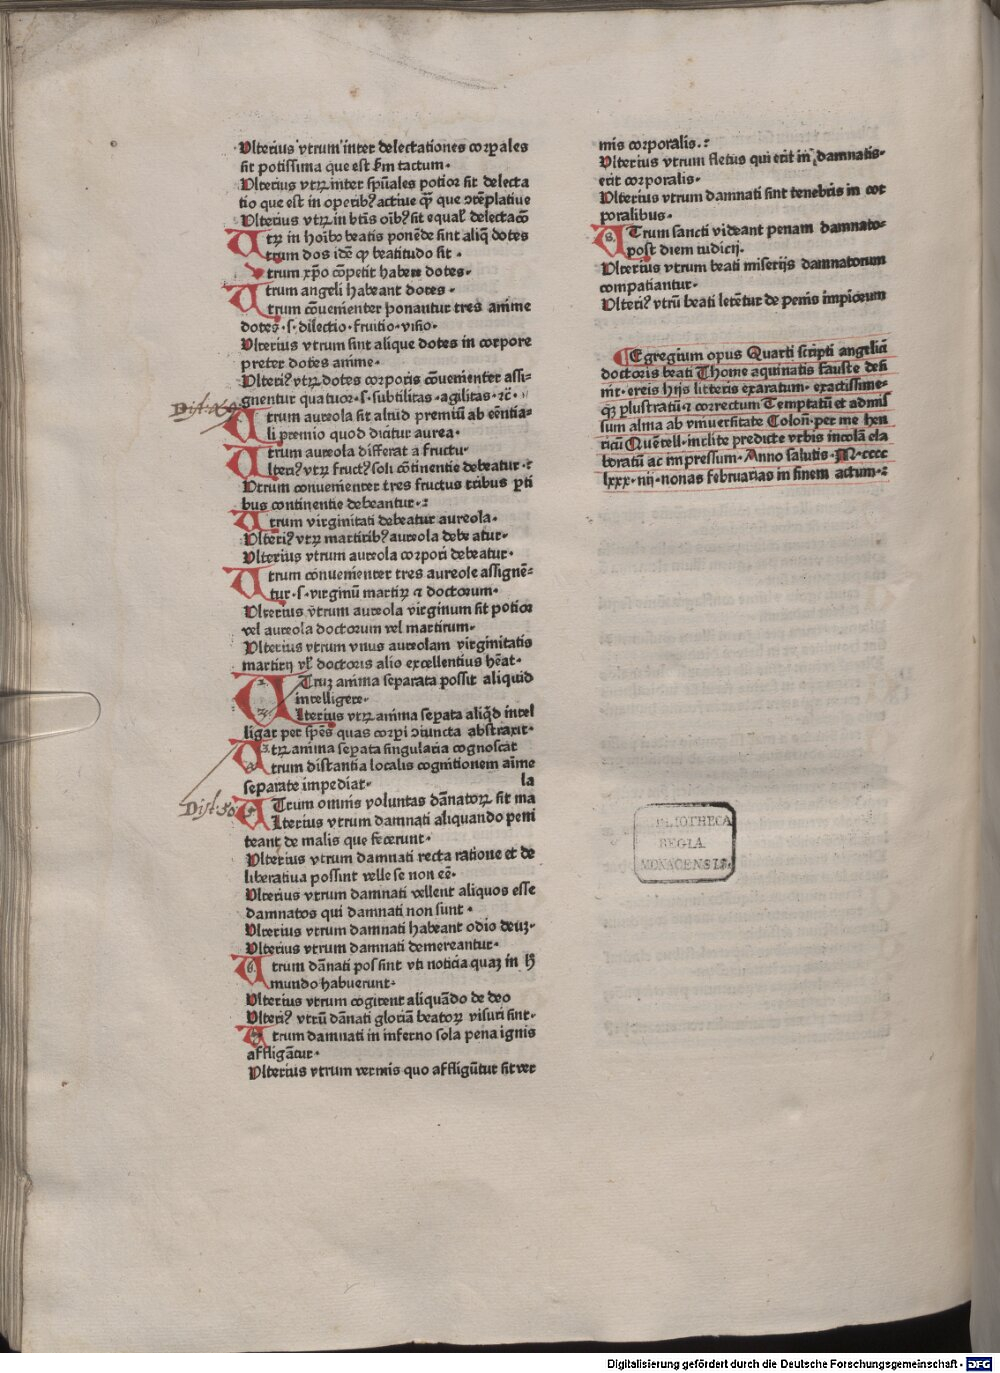 Vlterius vtrum inter delectationes corꝑales
sit potissima que est ẜm tactum·
Vlterius vtꝝ inter sp̃uales potior sit delecta
tio que est in operibꝰ actiue q̃ que ↄtẽplatiue
Vlterius vtꝝ in btĩs oĩbꝰ sit equal' delectacõ
Atꝝ in hoĩbꝰ beatis ponẽde sint aliq̃ dotes
trum dos idẽ ꝙ beatitudo sit·
vtrum xp̃o cõpetit habere dotes·
Atrum angeli habeant dotes·
trum cõuenienter ponantur tres anime
dotes·s·dilectio·fruitio·visio·
Vlterius vtrum sint alique dotes in corpore
preter dotes anime·
Vlteriꝰ vtꝝ dotes corporis cõuenienter assi-
gnentur quatuor·s·subtilitas·agilitas·ꝛc̃·
Dist. 49
Atrum aureola sit aliud premiũ ab eẽntia-
li premio quod dicatur aurea·
Atrum aureola differat a fructu·
lteriꝰ vtꝝ fructꝰ soli cõtinentie debeatur·?
Vtrum conuenienter tres fructus tribus ꝑti
bus continentie debeantur·:
Atrum virginitati debeatur aureola·
Vlteriꝰ vtꝝ martiribꝰ aureola debeatur·
Vlterius vtrum aureola corpori debeatur·
Atrum cõnuenienter tres aureole assignẽ-
tur·s·virginũ martiꝝ ⁊ doctorum·
Vlterius vtrum aureola virginum sit potior
vel aureola doctorum vel martirum·
Vlterius vtrum vnus aureolam virginitatis
martirij vl' doctoris alio excellentius hẽat·
1. ATruꝫ anima separata possit aliquid
intelligere·
2. lterius vtꝝ anima seꝑata aliq̃d intel
ligat per sp̃es quas corꝑi ↄiuncta abstraxit·
A3. tꝝ anima seꝑata singularia cognoscat
4. trum distantia localis cognitionem aĩme
separate impediat· la
Dist. 50
A5. Trum omnis voluntas dãnatoꝝ sit ma
lterius vtrum damnati aliquando peni
teant de malis que fecerunt·
Vlterius vtrum damnati recta ratione et de
liberatiua possint velle se non eẽ·
Vlterius vtrum damnati vellent aliquos esse
damnatos qui damnati non sunt·
Vlterius vtrum damnati habeant odio deuꝫ·
Vlterius vtrum damnati demereantur·
A6. trum dãnati possint vti noticia quaꝫ in h̃
mundo habuerunt·
Vlterius vtrum cogitent aliquãdo de deo
Vlteriꝰ vtrũ dãnati gloriã beatoꝝ visuri sint·
A7. trum damnati in inferno sola pena ignis
affligãtur·
Vlterius vtrum vermis quo affligũtur sit ver
mis corporalis·:
Vlterius vtrum fletus qui erit in damnatis·
erit corporalis·
Vlterius vtrum damnati sint tenebris in cor
poralibus·
A8. Trum sancti videant penam damnato-
post diem iudicij·
Vlterius vtrum beati miserijs damnatorum
compatiantur·
Vlteriꝰ vtrũ beati letẽtur de penis impiorum
Egregium opus Quarti scripti angelici
doctoris beati Thome aquinatis fauste desi
nit·ereis hijs litteris exaratum·exactissime-
qꝫ ꝑlustratũ ⁊ correctum Temptatũ et admis
sum alma ab vniuersitate Colon̄·per me hen
ricũ Quẽtell·inclite predicte vrbis incolã ela
boratũ ac impressum·Anno salutis·M·cccc
lxxx·iiij·nonas februarias in finem actum·:
BIBLIOTHECA
REGIA
MONACENSIS.
Digitalisierung gefördert durch die Deutsche Forschungsgemeinschaft - DFG